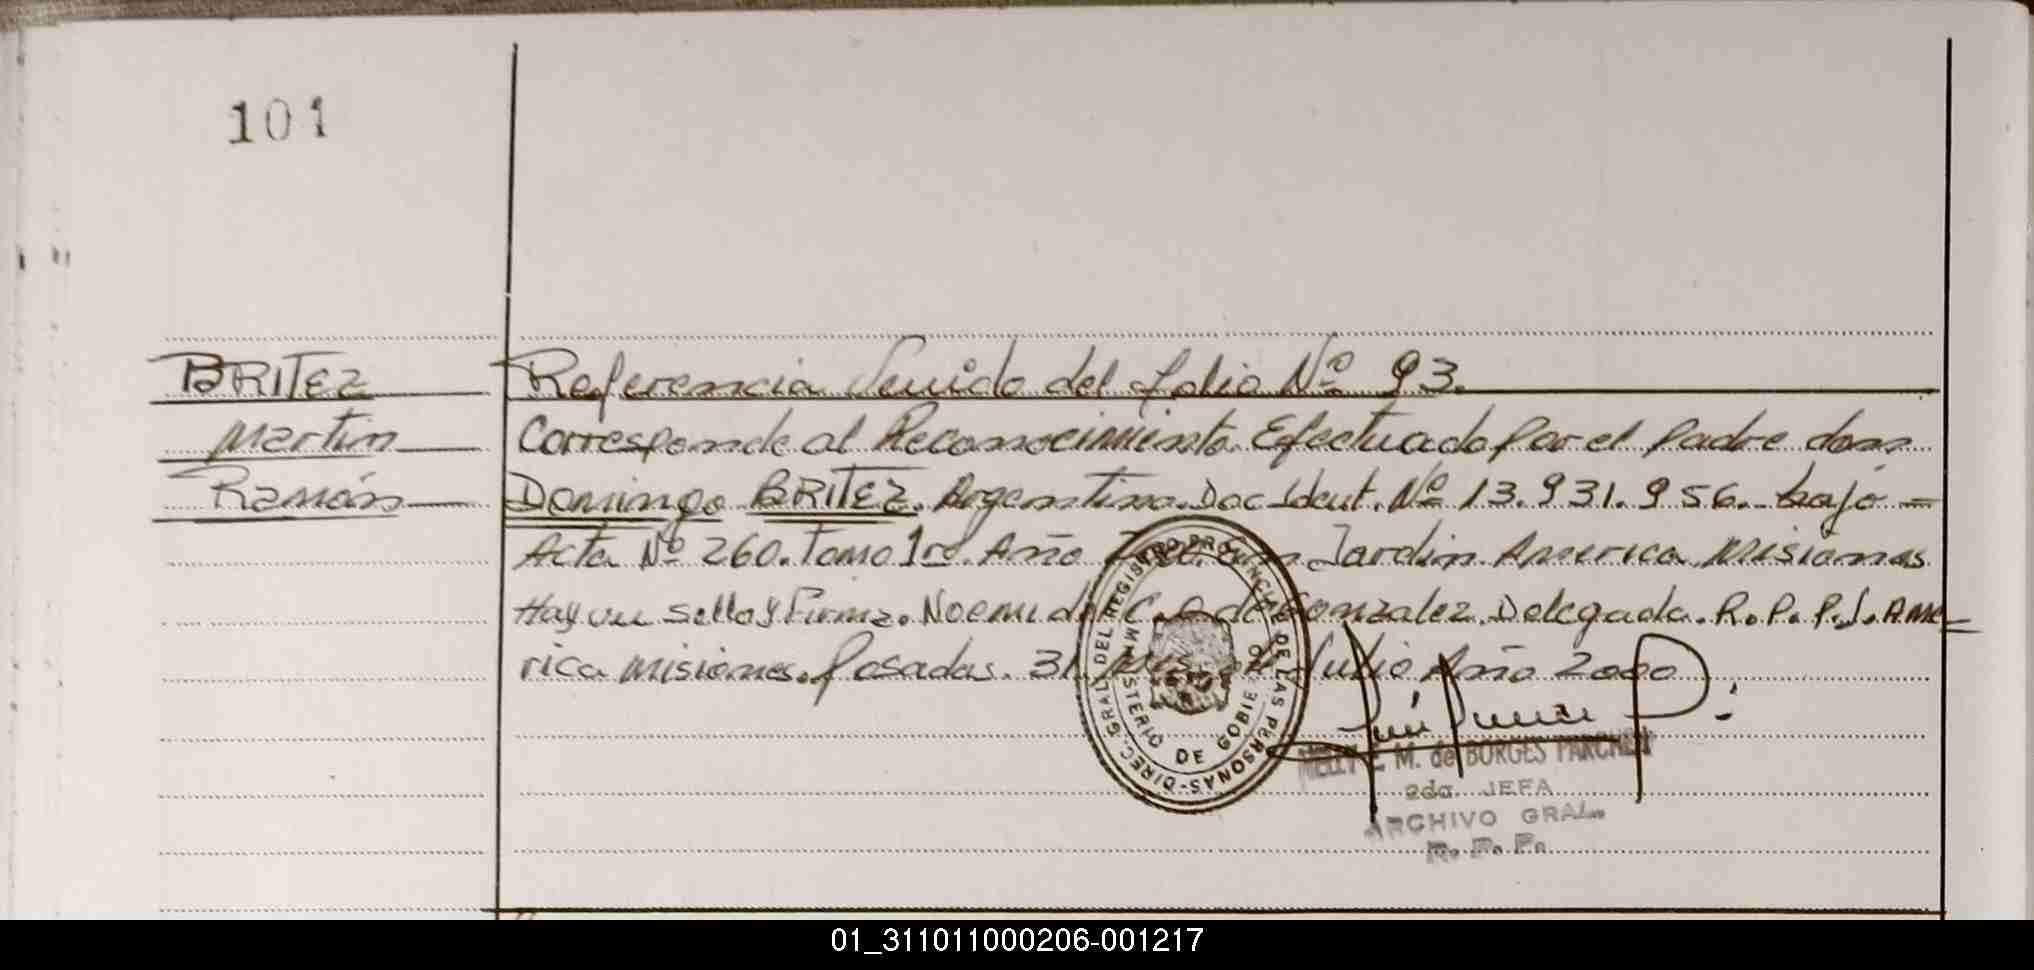 101
BRITEZ
Martin
Ramón
Referencia Venido del folio Nº 93.
Corresponde al Reconocimiento Efectuado por el padre don
Domingo BRITEZ. Argentino. Doc Ident. Nº 13.931.956. bajo =
Acta Nº 260. Tomo 1ro. Año en Jardin America Misiones
Hay un sello y Firma. Noemi de C. de Gonzalez. Delegada. R.P.P.J. Ame=
rica Misiones. Posadas. 31 Julio Año 2000
DIREC. GRAL DEL REGISTRO PROVINCIAL DE LAS PERSONAS
MINISTERIO DE GOBIERNO
NELLY E. M. de BORGES PARCHEN
2da. JEFA
ARCHIVO GRAL.
R. P. P.
01_311011000206-001217